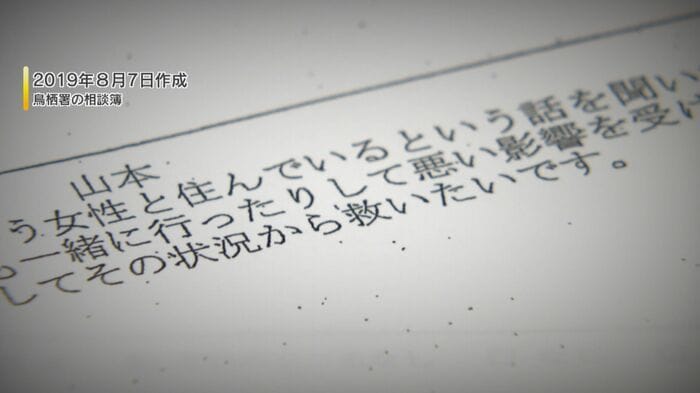 2019年8月7日作成
鳥栖署の相談簿
山本
う女性と住んでいるという話を聞い
一緒に行ったりして悪い影響を受い
してその状況から救いたいです。